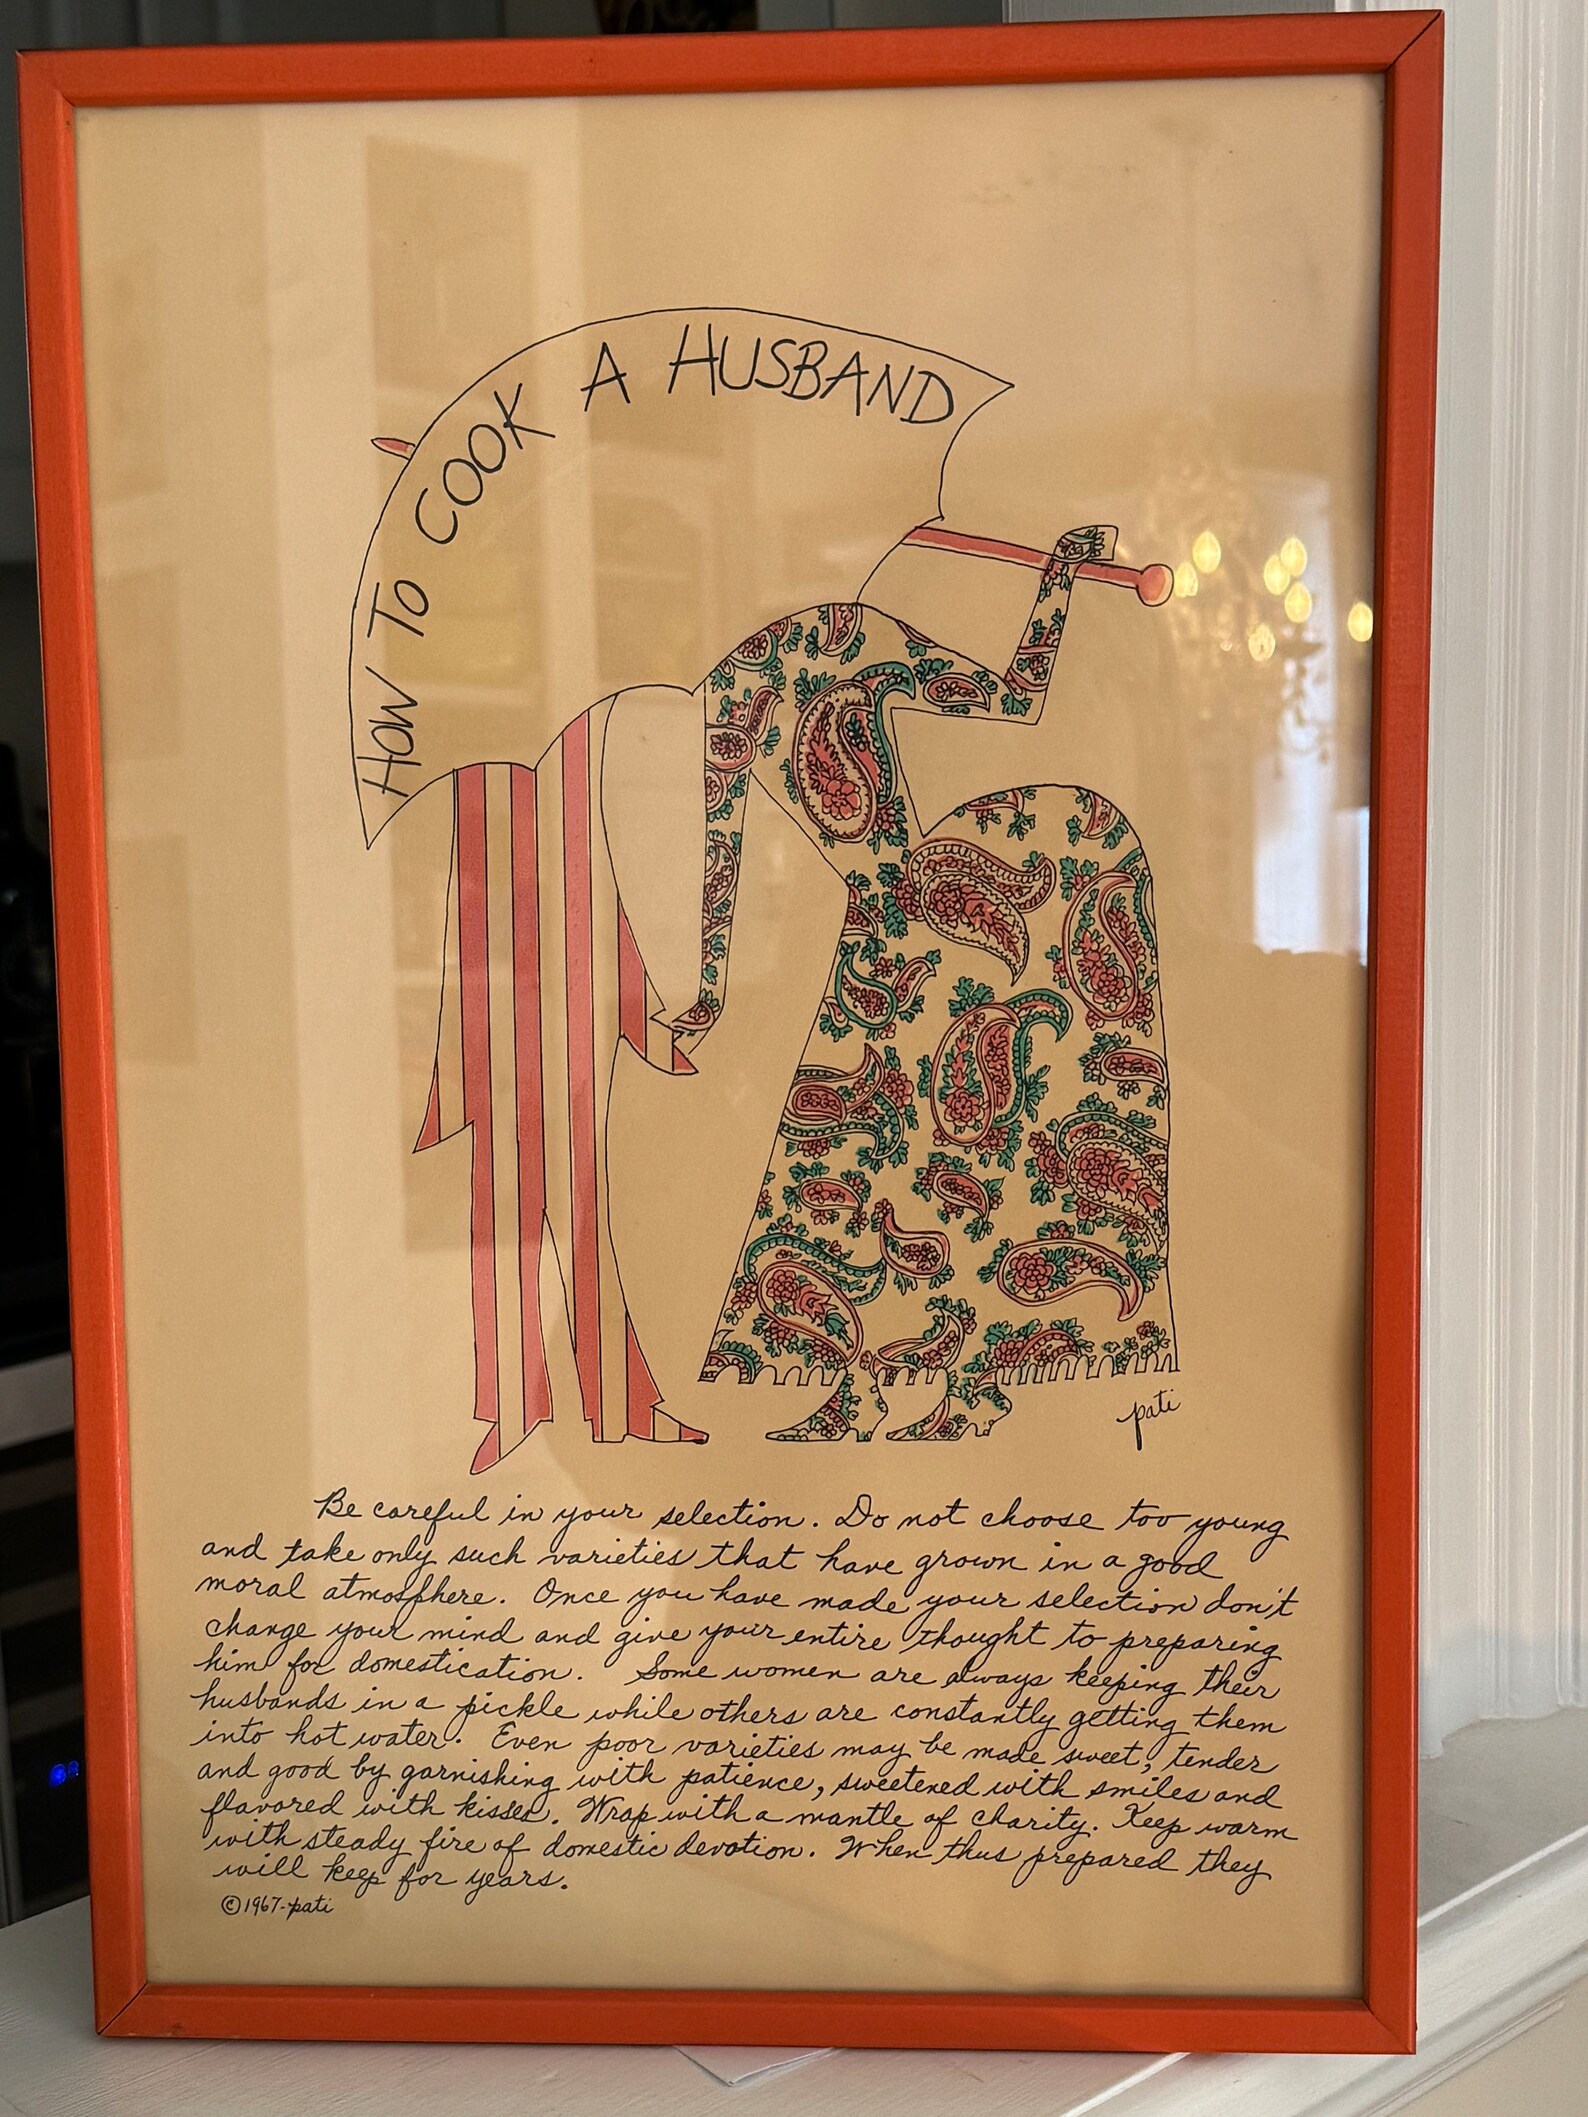 HOW TO COOK A HUSBAND
pati
Be careful in your selection. Do not choose too young
and take only such varieties that have grown in a good
moral atmosphere. Once you have made your selection don't
change your mind and give your entire thought to preparing
him for domestication. Some women are always keeping their
husbands in a pickle while others are constantly getting them
into hot water. Even poor varieties may be made sweet, tender
and good by garnishing with patience, sweetened with smiles and
flavored with kisses. Wrap with a mantle of charity. Keep warm
with steady fire of domestic devotion. When thus prepared they
will keep for years.
©1967-pati